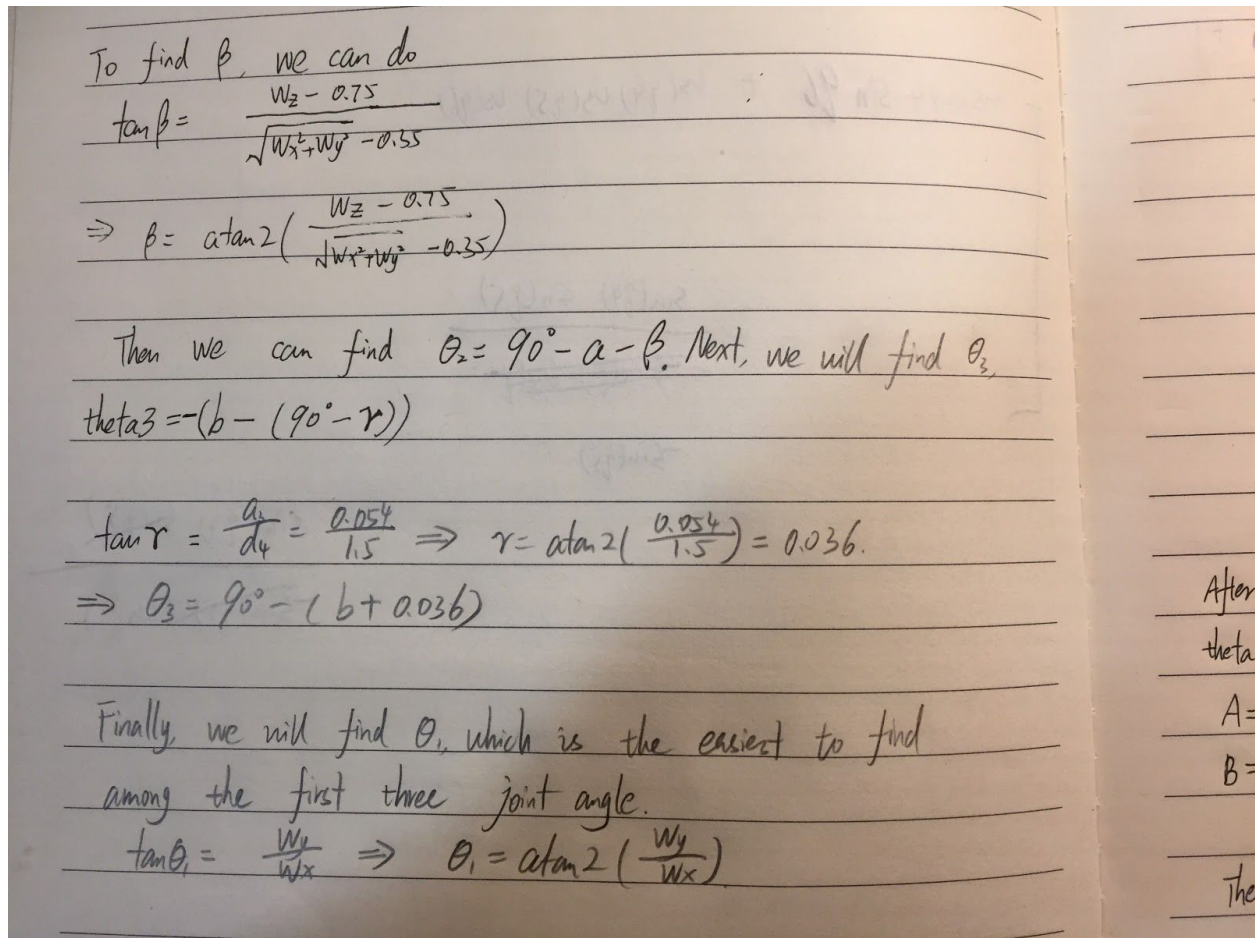 To find β, we can do
tanβ = (Wz - 0.75) / (√(Wx²+Wy²) - 0.35)
⇒ β = atan2( (Wz - 0.75) / (√(Wx²+Wy²) - 0.35) )
Then we can find θ₂ = 90° - a - β. Next, we will find θ₃,
theta3 = -(b - (90° - r))
tan r = a₃/d₄ = 0.054/1.5 ⇒ r = atan2( 0.054/1.5 ) = 0.036.
⇒ θ₃ = 90° - ( b + 0.036)
Finally, we will find θ₁, which is the easiest to find
among the first three joint angle.
tanθ₁ = Wy/Wx ⇒ θ₁ = atan2 ( Wy/Wx )
After
theta
A=
B=
The